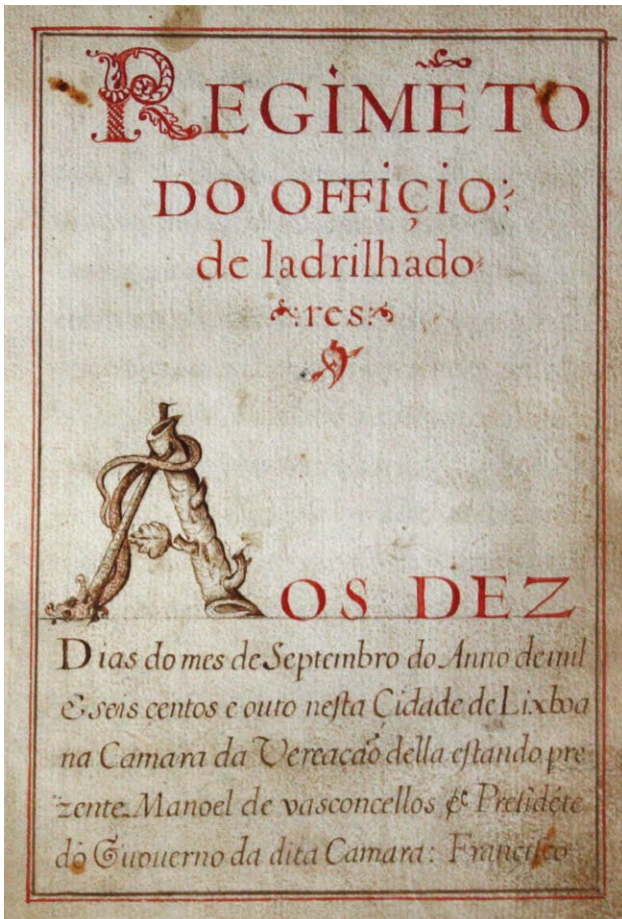 REGIMẼTO
DO OFFIÇIO
de ladrilhado
res
AOS DEZ
Dias do mes de Septembro do Anno de mil
& seis centos e outo neſta Çidade de Lixboa
na Camara da Vereacaõ della eſtando pre
zente Manoel de vasconcellos &c Preſidẽte
do Guouerno da dita Camara: Franciſco